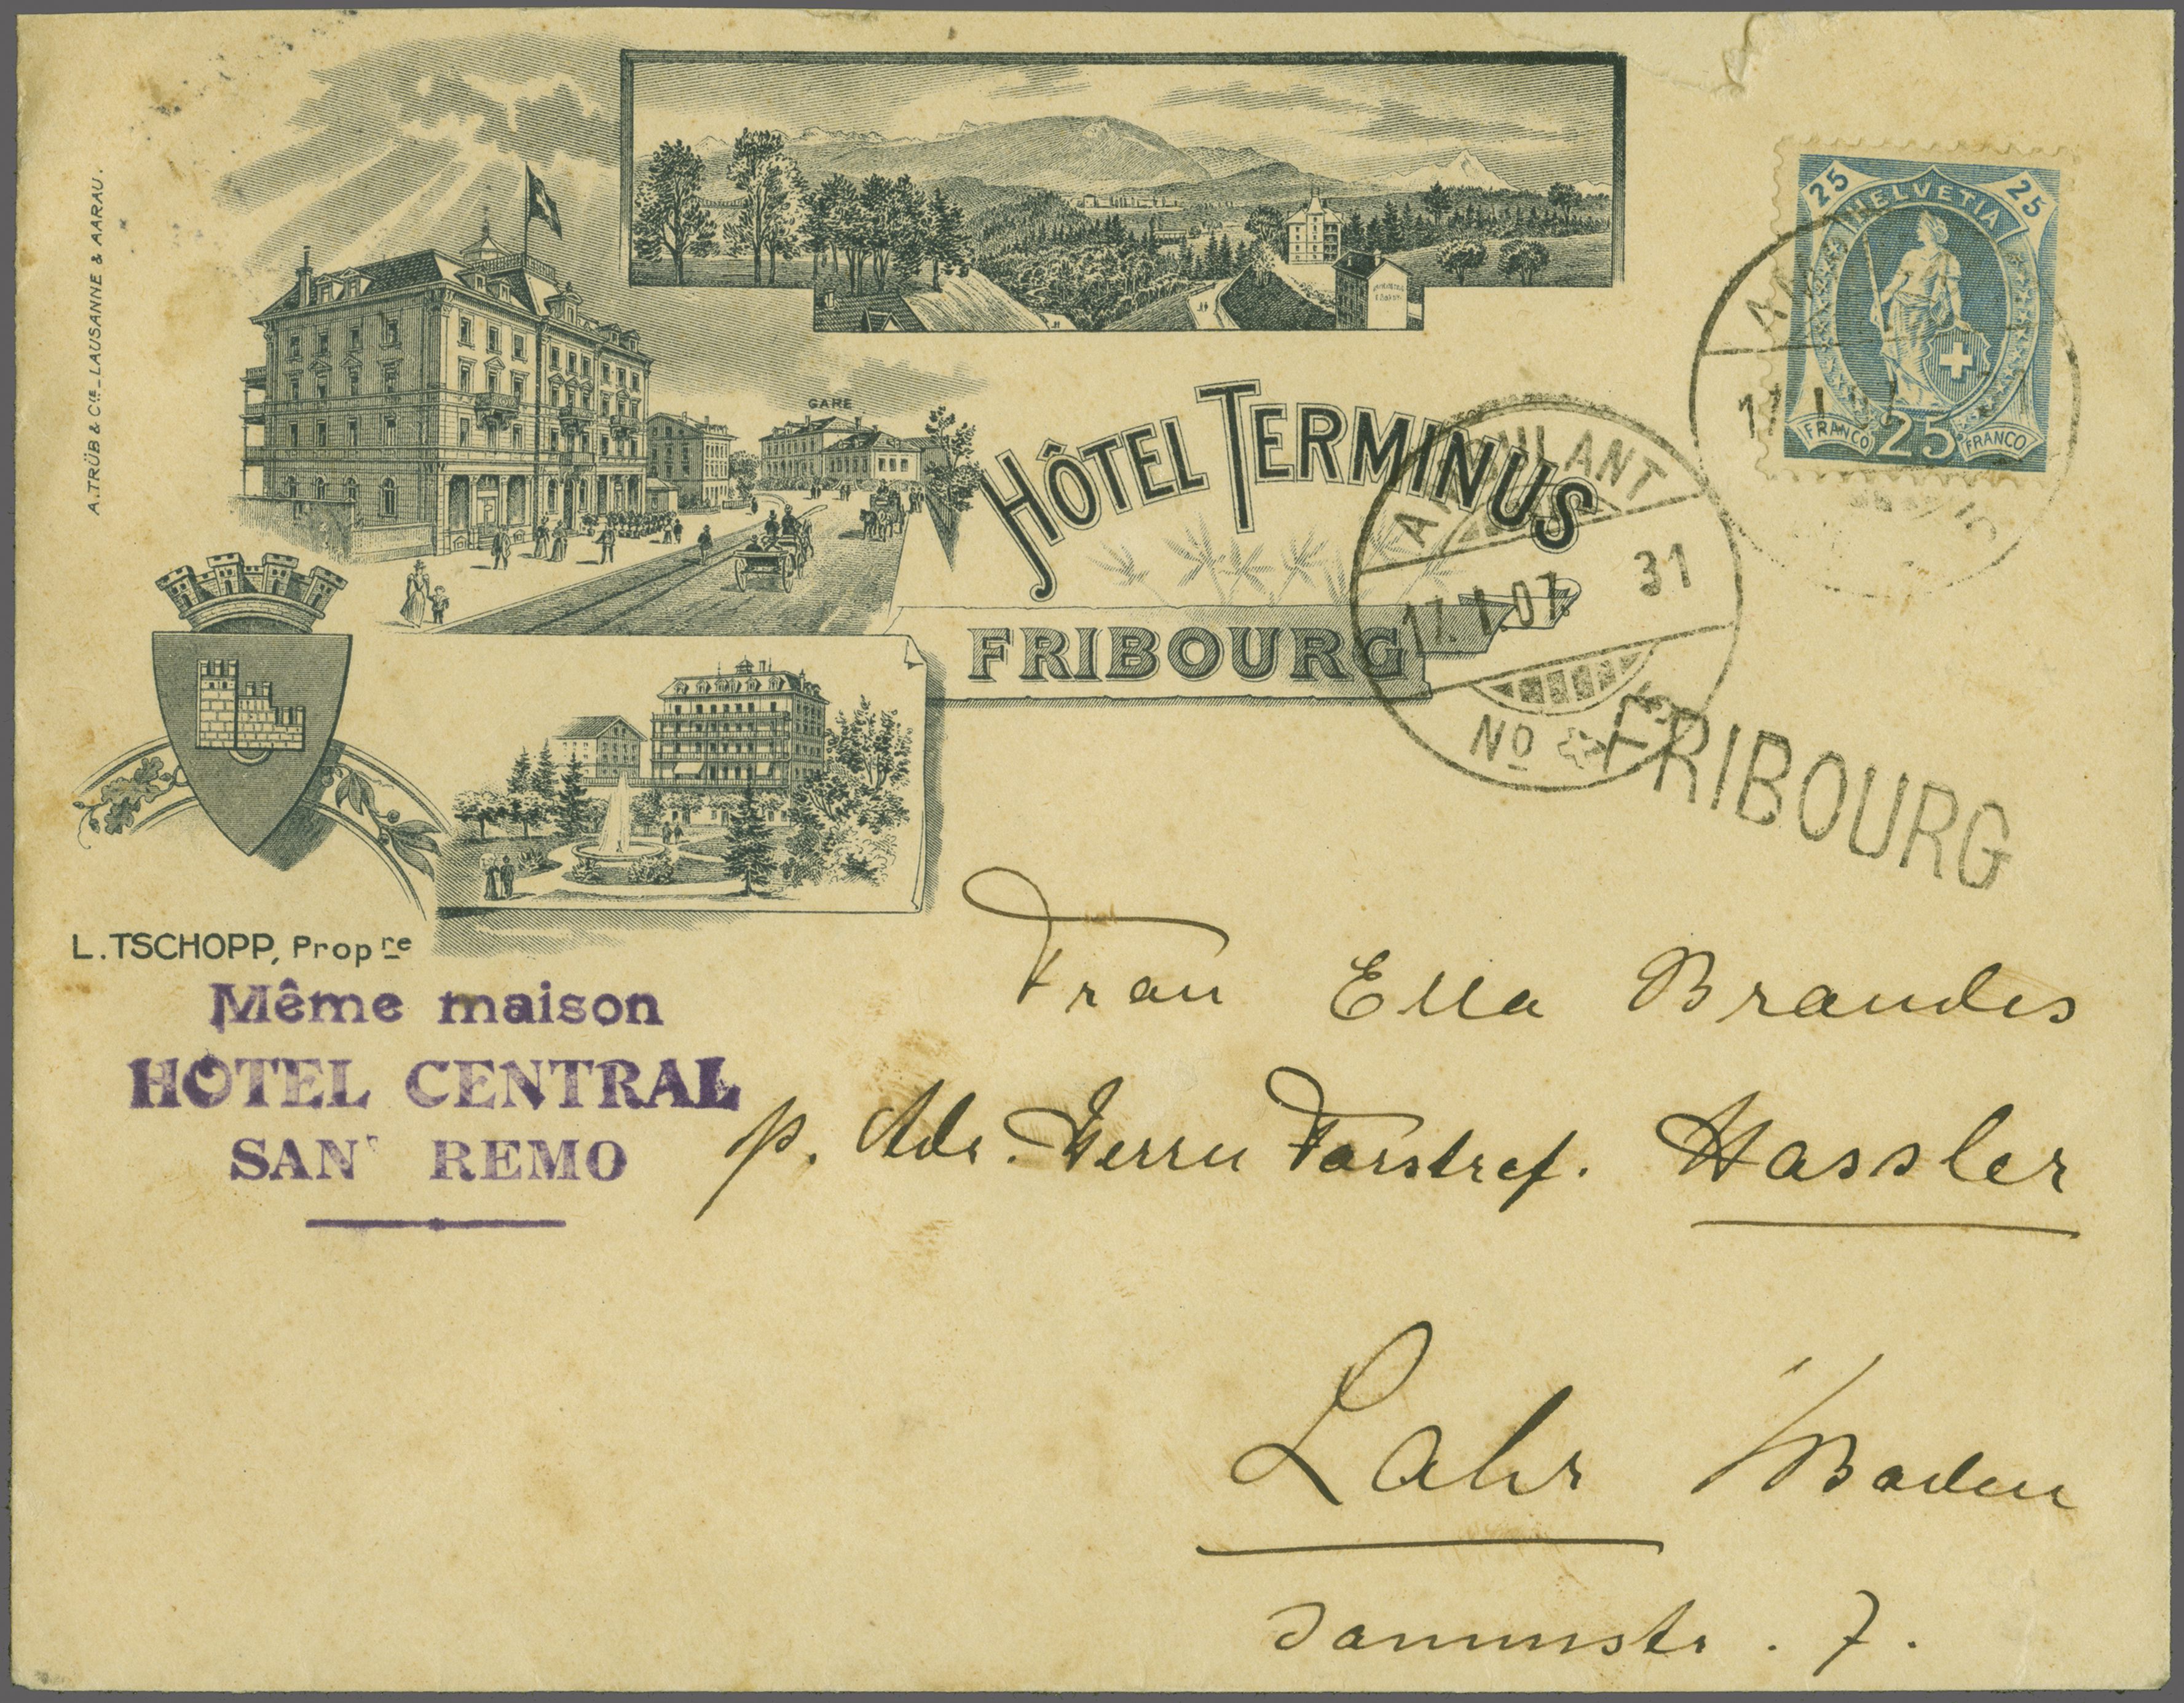 A. TRÜB & Cie. LAUSANNE & AARAU.
GARE
HÔTEL TERMINUS
FRIBOURG
25 HELVETIA 25
FRANCO 25 FRANCO
AMBULANT
17. I. 07. 31
No
FRIBOURG
L. TSCHOPP, Propre
Même maison
HÔTEL CENTRAL
SAN REMO
Frau Ella Brandes
p. Adr. Herrn Forstref. Hassler
Lahr i/Baden
7.